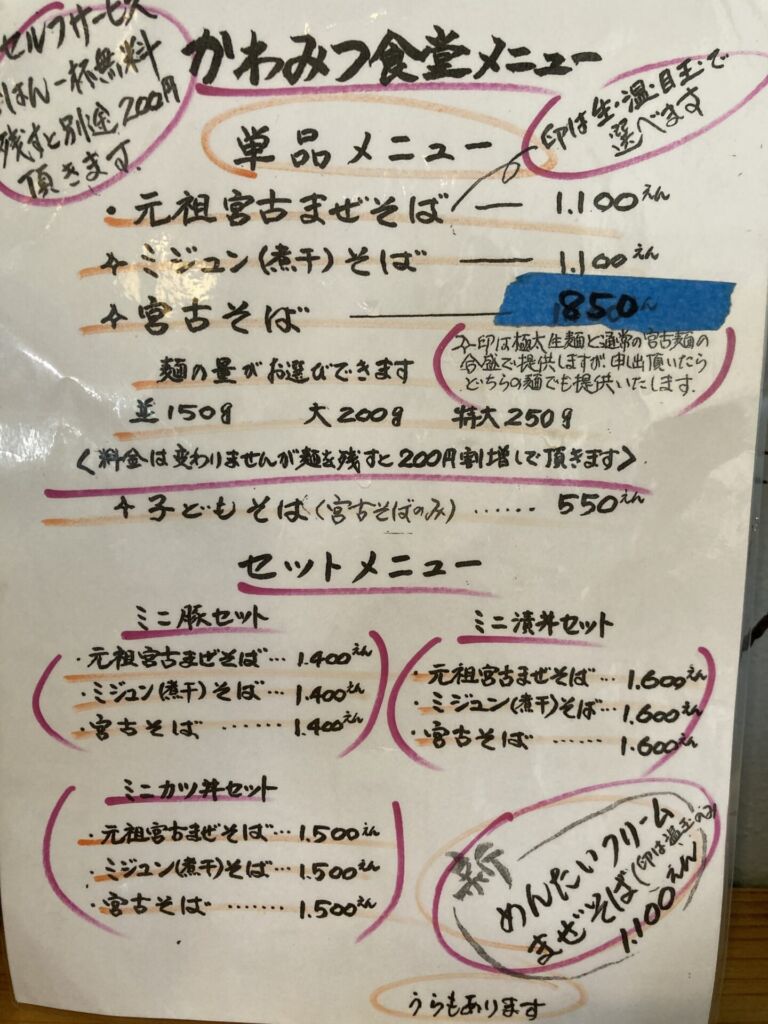 セルフサービス
ごはん一杯無料
残すと別途200円
頂きます.
かわみつ食堂メニュー
印は生・温・目玉で
選べます
単品メニュー
・元祖宮古まぜそば — 1.100えん
ミジュン(煮干)そば — 1.100えん
宮古そば — 850ん
印は極太生麺と通常の宮古麺の
合盛で提供しますが、申出頂いたら
どちらの麺でも提供いたします.
麺の量がお選びできます
並150g 大200g 特大250g
〈料金は変わりませんが麺を残すと200円割増しで頂きます〉
子どもそば(宮古そばのみ)……550えん
セットメニュー
ミニ豚セット
・元祖宮古まぜそば…1.400えん
・ミジュン(煮干)そば…1.400えん
・宮古そば ……1.400えん
ミニ漬丼セット
・元祖宮古まぜそば…1.600えん
・ミジュン(煮干)そば…1.600えん
・宮古そば ……1.600えん
ミニカツ丼セット
・元祖宮古まぜそば…1.500えん
・ミジュン(煮干)そば…1.500えん
・宮古そば ……1.500えん
新
めんたいクリーム
まぜそば(印は温玉のみ)
1.100えん
うらもあります